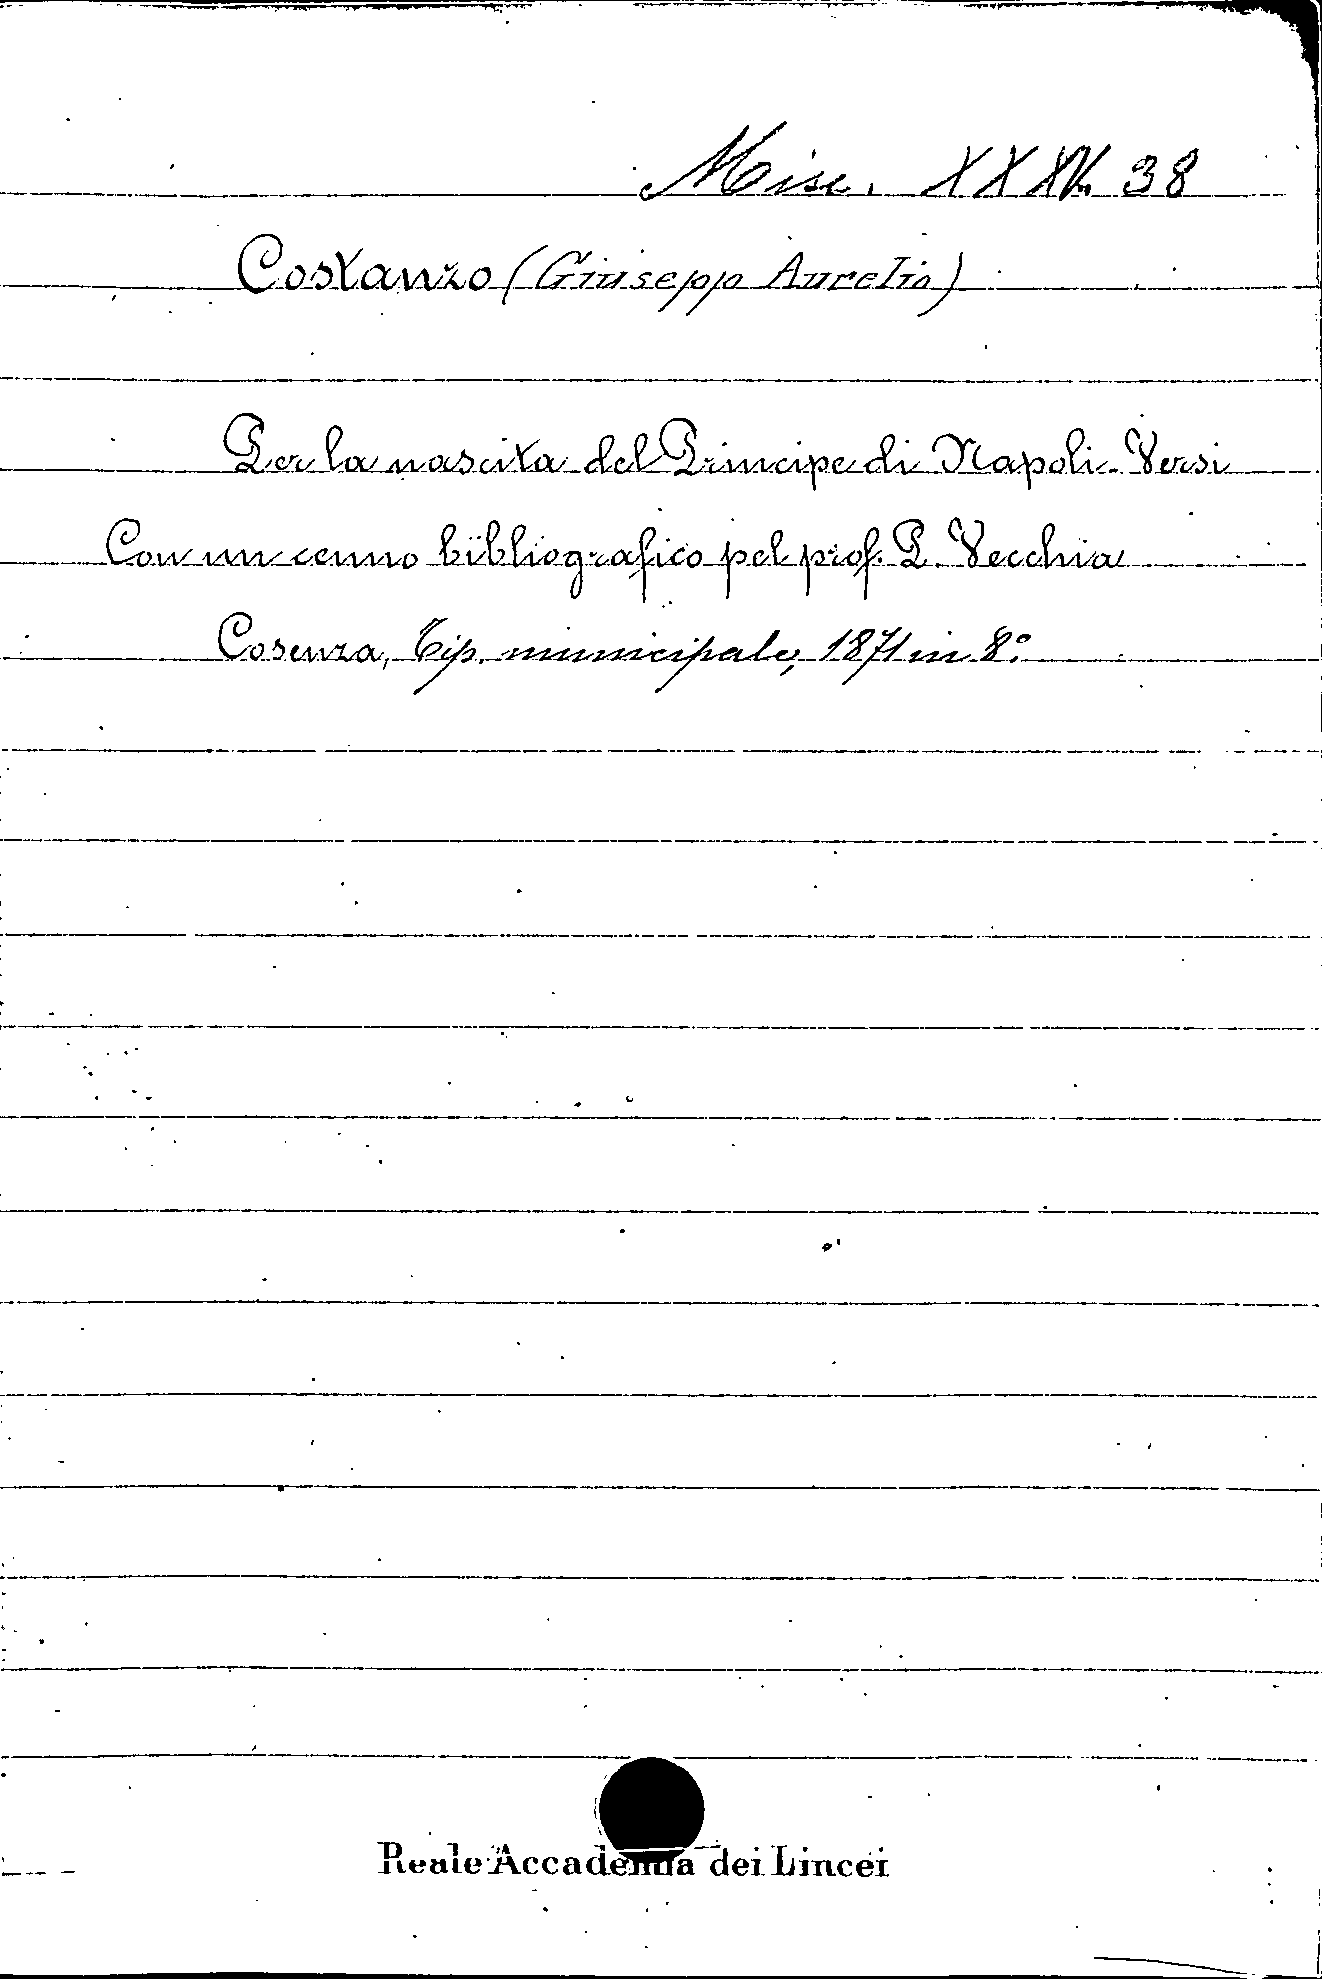 Misc. XXXV. 38
Costanzo (Giusepp Aurelio)
Per la nascita del Principe di Napoli - Versi
Con un cenno bibliografico pel prof. P. Vecchia
Cosenza, Tip. municipale, 1871 in 8º
Reale Accademia dei Lincei